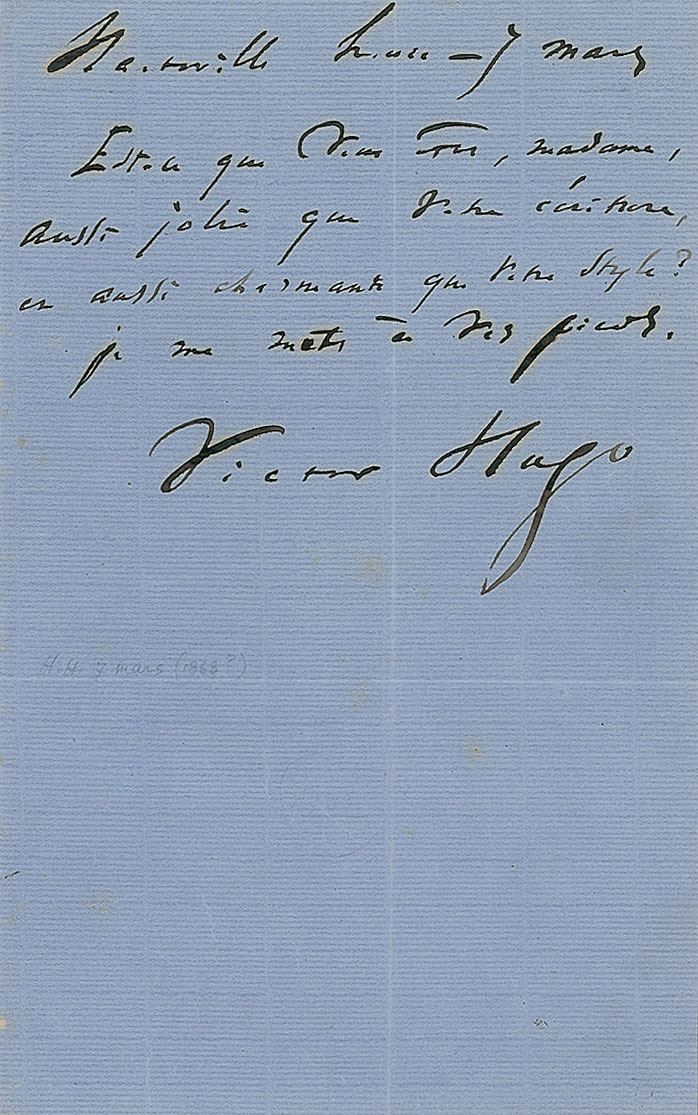 Hauteville house — 7 mars
Est-ce que vous êtes, madame,
aussi jolie que votre écriture,
et aussi charmante que votre style?
je me mets à vos pieds.
Victor Hugo
H.H. 7 mars (1868?)